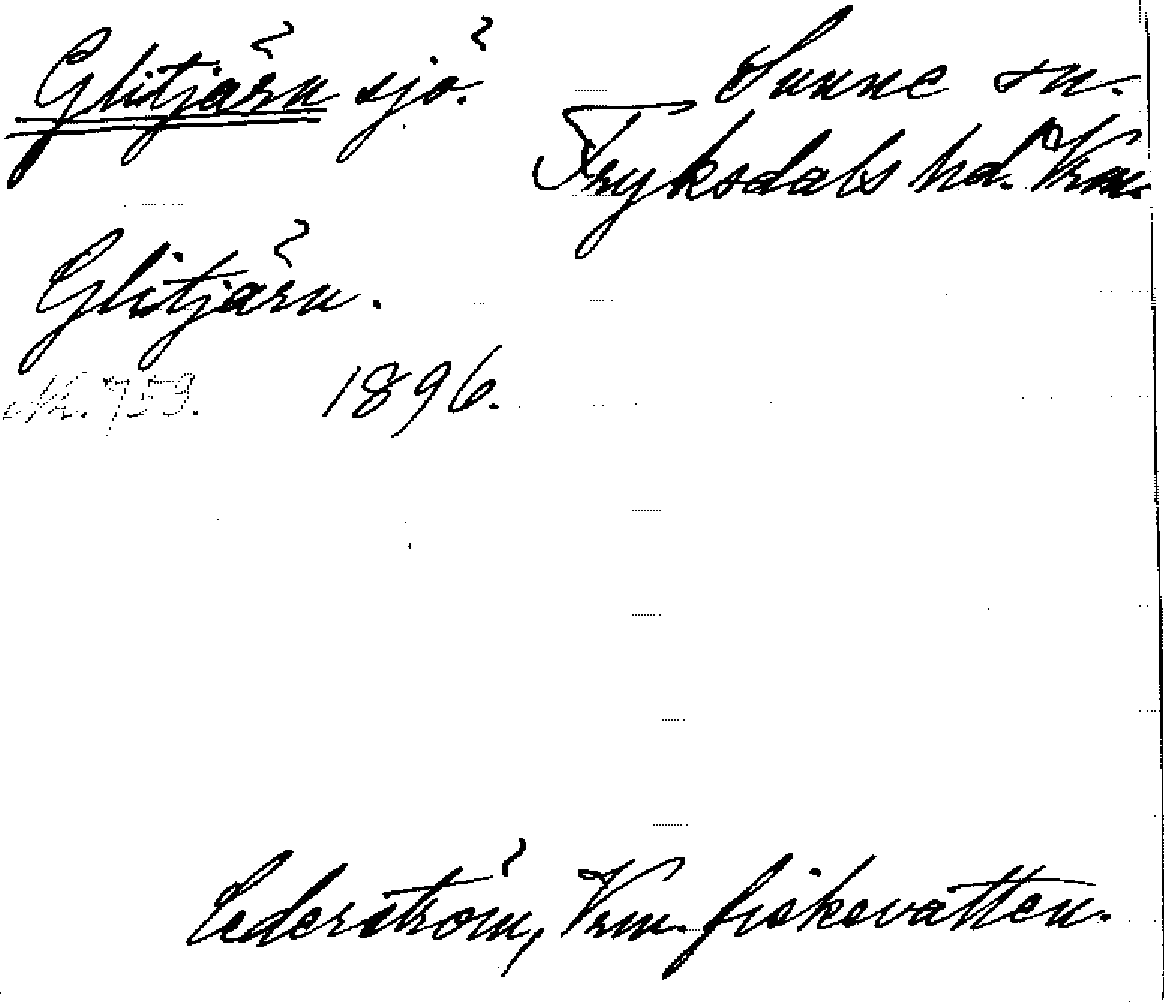 Glitjärn sjö. Sunne sn.
Fryksdals hd. Vrm.
Glitjärn.
N. 759. 1896.
Cederström, Vrm. fiskevatten.